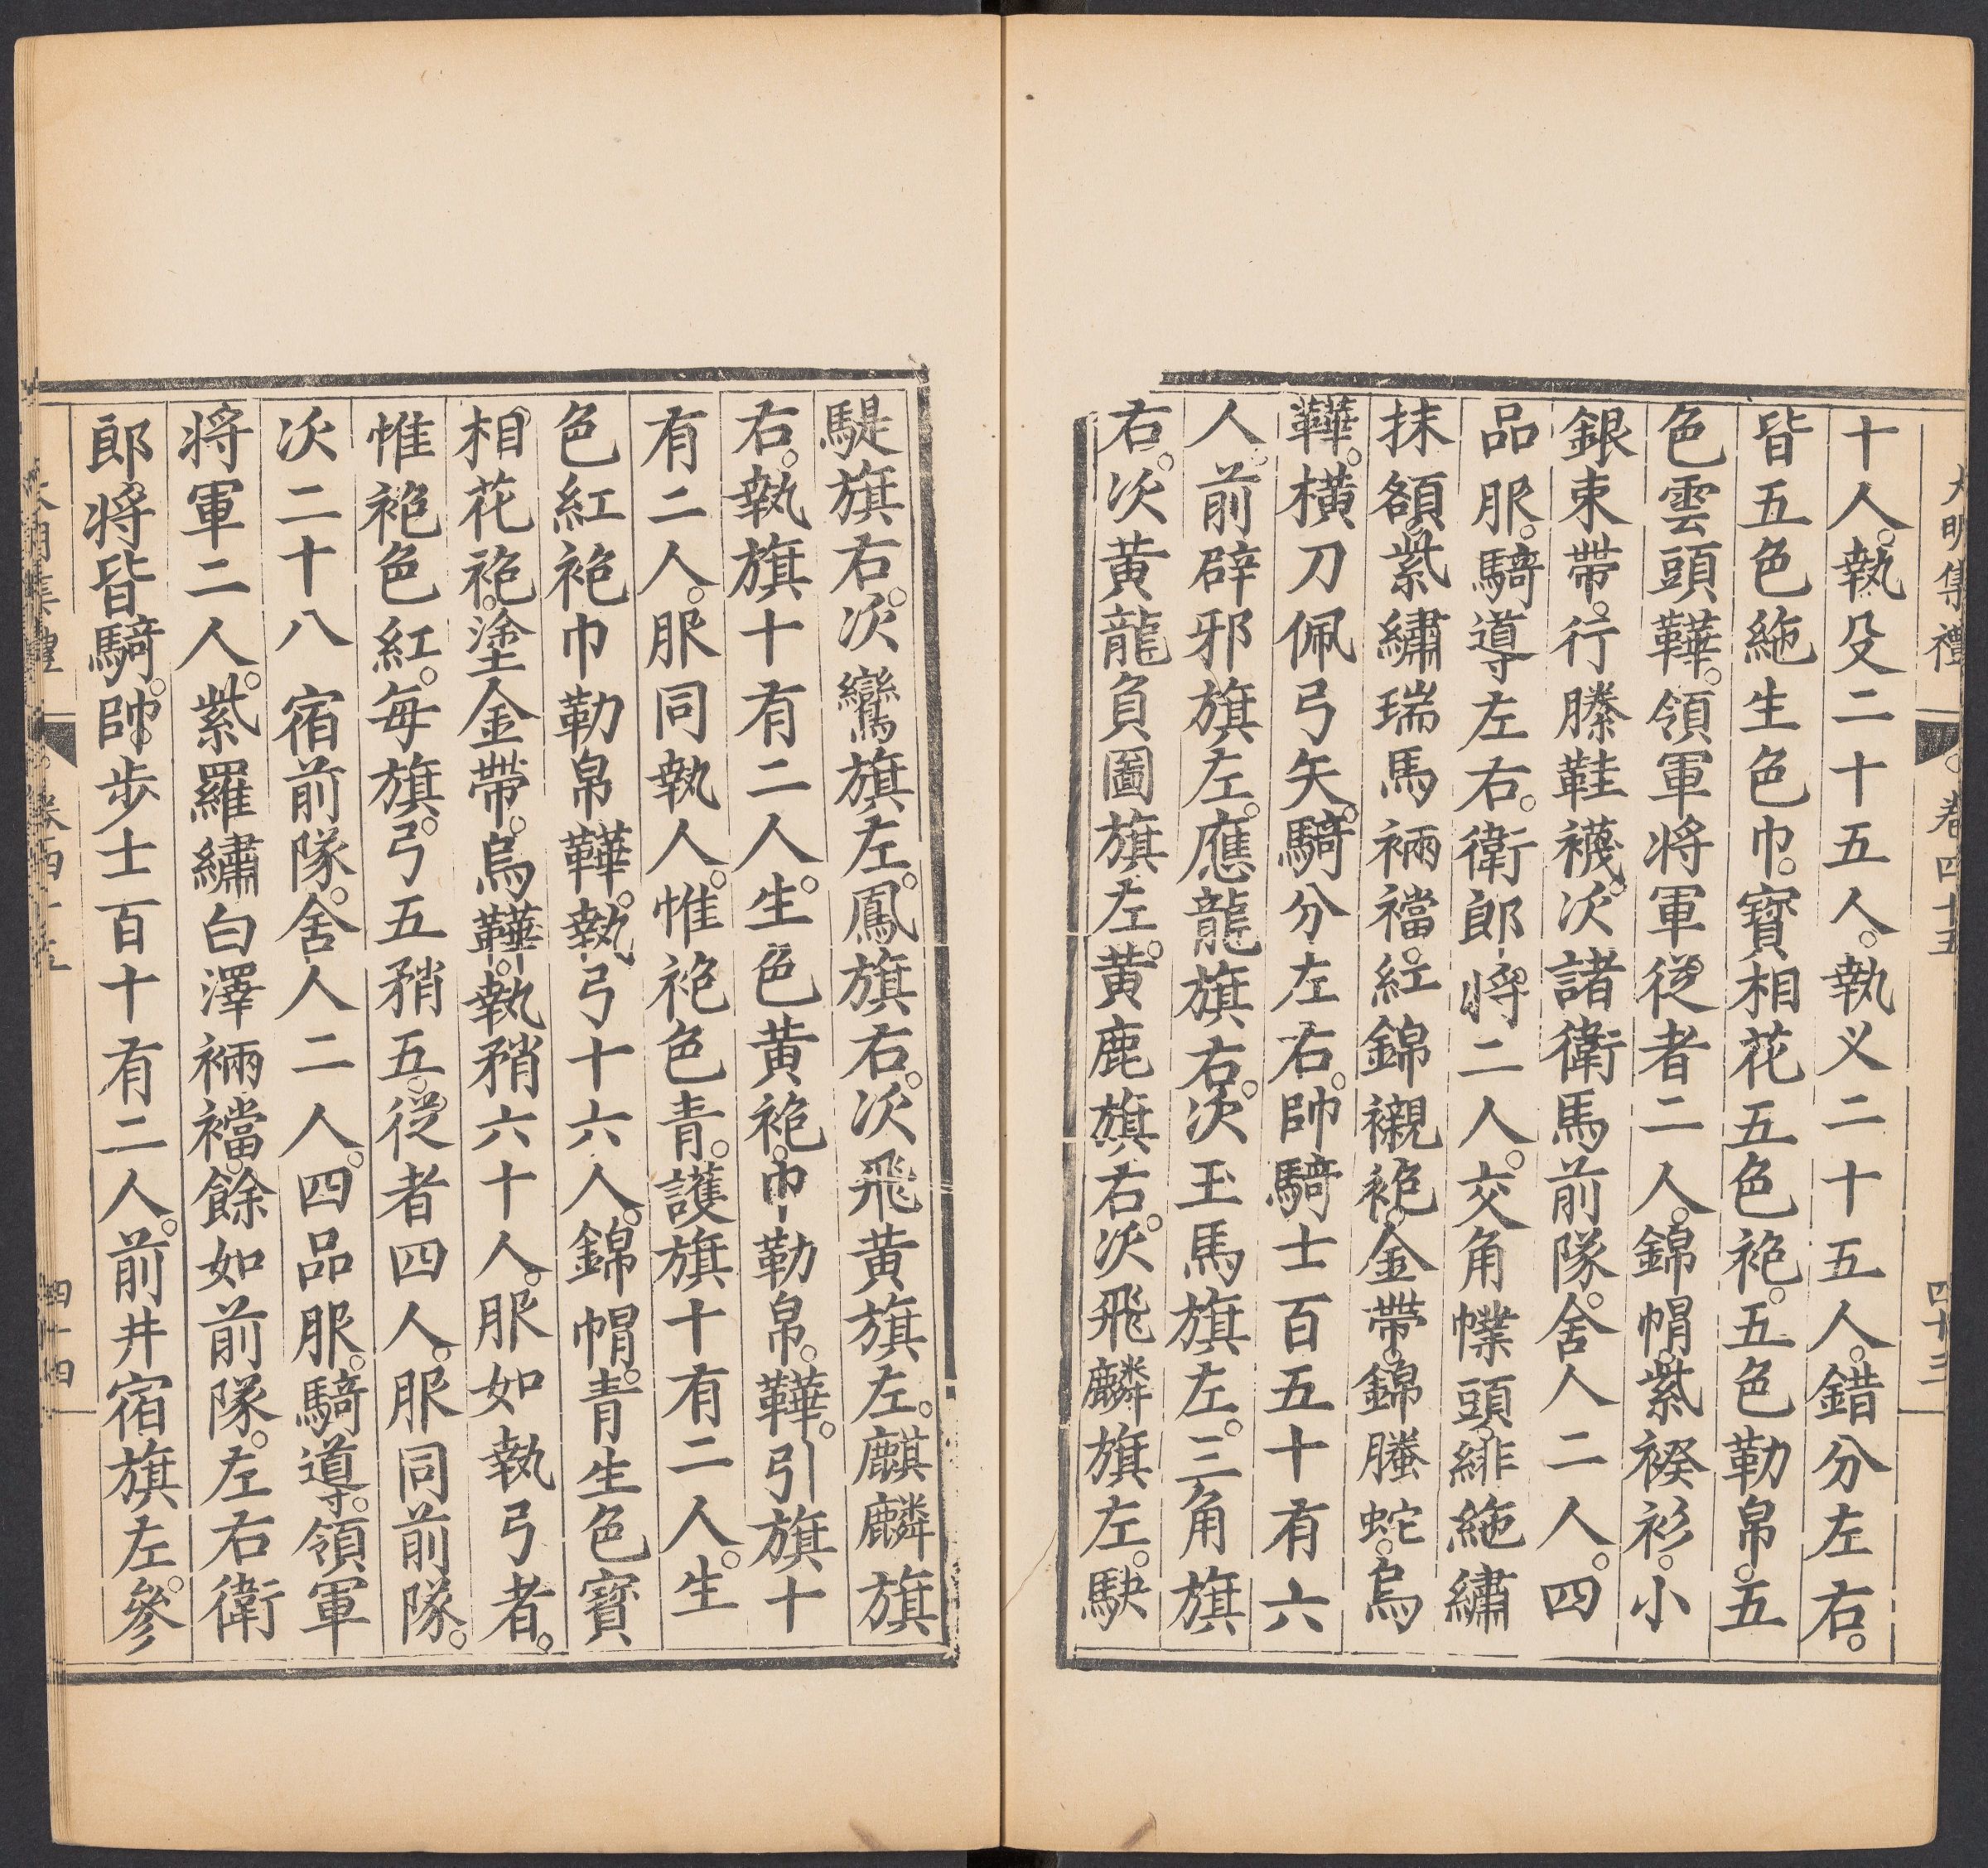 大明集禮 卷四十五 四十三
十人。執殳二十五人。執义二十五人。錯分左右。
皆五色絁生色巾。寶相花五色袍。五色勒帛。五
色雲頭鞾。領軍將軍從者二人。錦帽。紫褑衫。小
銀束帶。行縢鞋襪。次諸衛馬前隊。舍人二人。四
品服。騎導左右。衛郎將二人。交角幞頭。緋絁繡
抹額。紫繡瑞馬裲襠。紅錦襯袍。金帶。錦螣蛇。烏
鞾。橫刀佩弓矢。騎分左右。帥騎士百五十有六
人。前辟邪旗左。應龍旗右。次玉馬旗左。三角旗
右。次黃龍負圖旗左。黃鹿旗右。次飛麟旗左。駃
騠旗右。次鸞旗左。鳳旗右。次飛黃旗左。麒麟旗
右。執旗十有二人。生色黃袍。巾。勒帛。鞾。引旗十
有二人。服同執人。惟袍色青。護旗十有二人。生
色紅袍巾勒帛鞾。執弓十六人。錦帽。青生色寶
相花袍。塗金帶。烏鞾。執矟六十人。服如執弓者。
惟袍色紅。每旗。弓五矟五。從者四人。服同前隊。
次二十八宿前隊。舍人二人。四品服。騎導。領軍
將軍二人。紫羅繡白澤裲襠。餘如前隊。左右衛
郎將皆騎。帥步士百十有二人。前井宿旗左。參
大明集禮 卷四十五 四十四